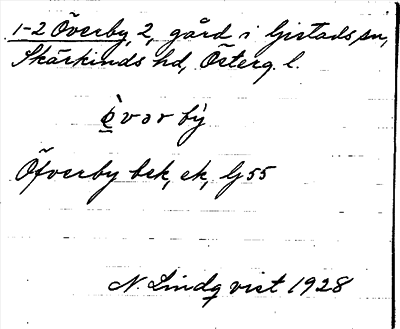 1-2 Överby, 2, gård i Gistads sn,
Skärkinds hd, Österg. l.
òvər bẏ
Öfverby bek, ek, Gj 55
N. Lindqvist 1928